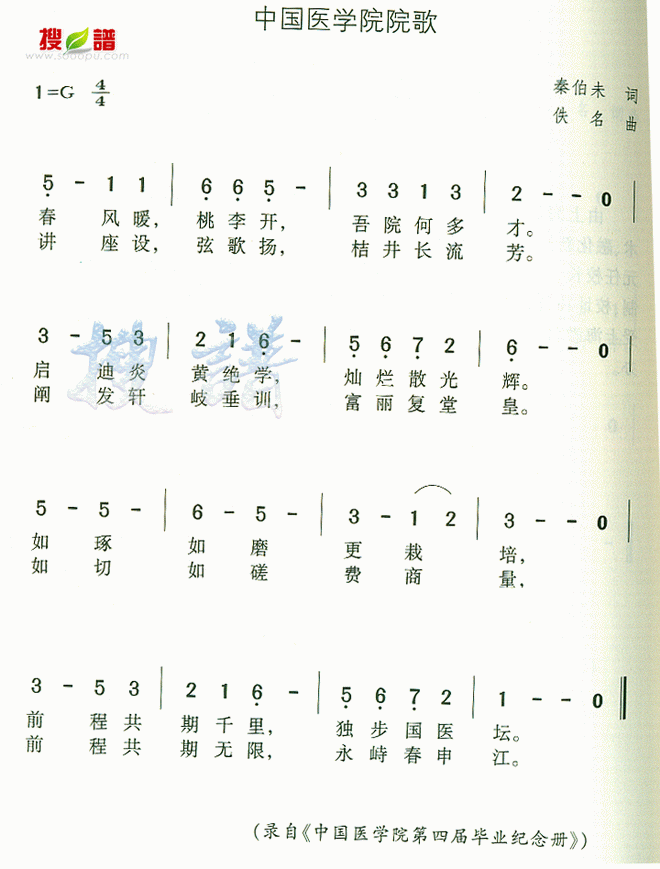 中国医学院院歌
搜譜
www.sooopu.com
1=G 4/4
秦伯未 词
佚名 曲
5 - 1 1 | 6 6 5 - | 3 3 1 3 | 2 - - 0 |
春 风暖, 桃李开, 吾院何多 才。
讲 座设, 弦歌扬, 桔井长流 芳。
3 - 5 3 | 2 1 6 - | 5 6 7 2 | 6 - - 0 |
启 迪炎 黄绝学, 灿烂散光 辉。
阐 发轩 岐垂训, 富丽复堂 皇。
搜譜
5 - 5 - | 6 - 5 - | 3 - 1 2 | 3 - - 0 |
如 琢 如 磨 更 栽 培,
如 切 如 磋 费 商 量,
3 - 5 3 | 2 1 6 - | 5 6 7 2 | 1 - - 0 ‖
前 程共 期千里, 独步国医 坛。
前 程共 期无限, 永峙春申 江。
(录自《中国医学院第四届毕业纪念册》)